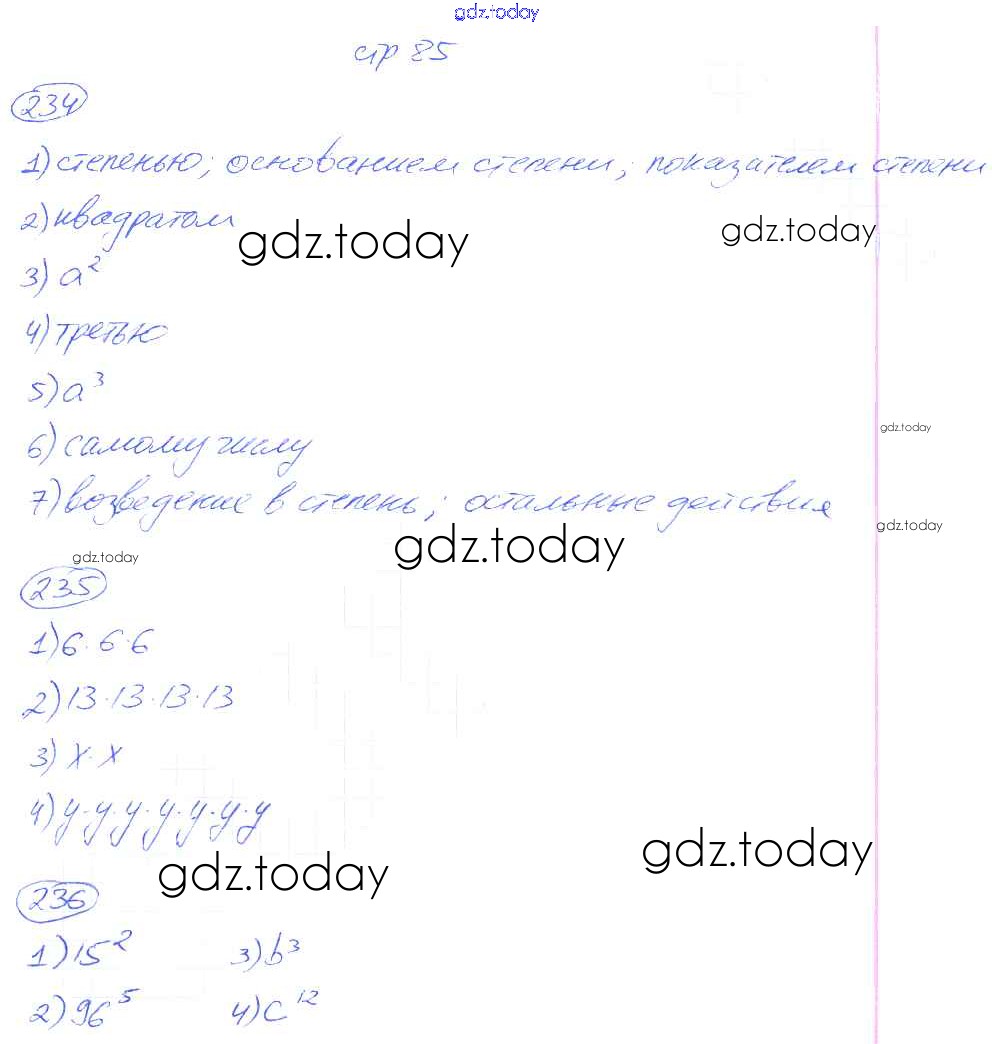 gdz.today
стр 85
234
1) степенью; основанием степени; показателем степени
2) квадратом
gdz.today
gdz.today
3) a²
4) третью
5) a³
6) самому числу
gdz.today
7) возведение в степень; остальные действия
gdz.today
gdz.today
gdz.today
235
1) 6·6·6
2) 13·13·13·13
3) x·x
4) y·y·y·y·y·y·y
gdz.today
gdz.today
236
1) 15² 3) b³
2) 96⁵ 4) c¹²